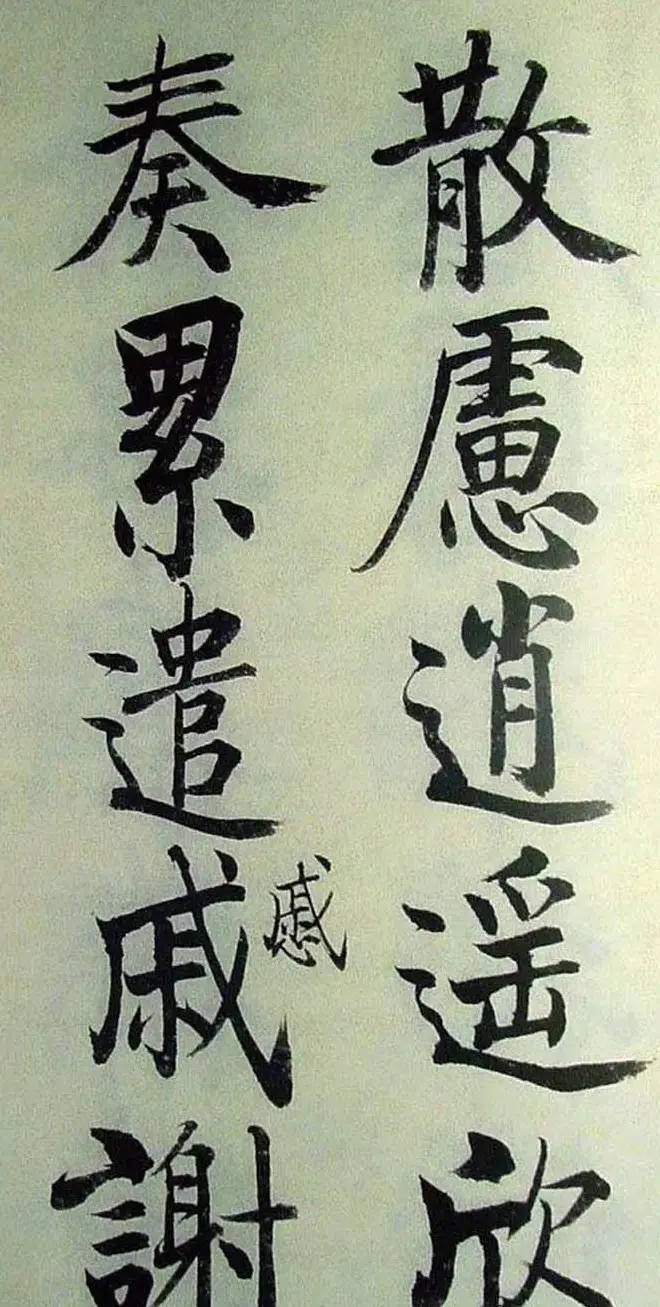 散慮逍遥欣
奏累遣戚謝
慼